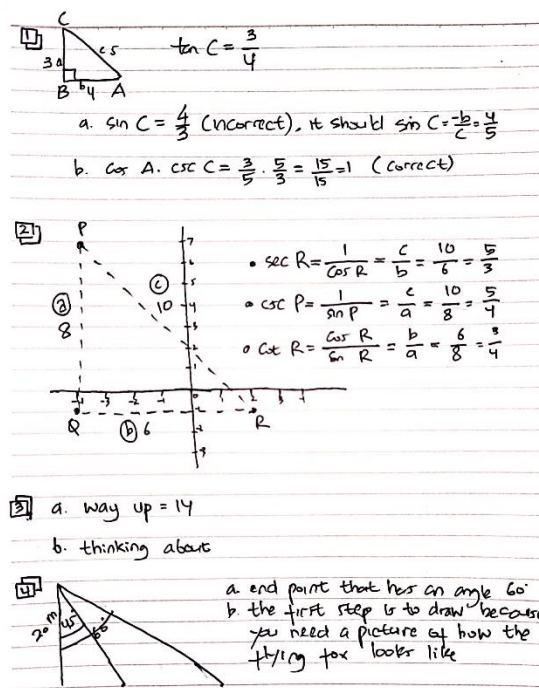 1
C
c5
3a
B
b4
A
tan C = 3/4
a. sin C = 4/3 (incorrect), it should sin C = -b/c = 4/5
b. cos A. csc C = 3/5 . 5/3 = 15/15 = 1 (correct)
2
P
a
8
c
10
7
5
4
3
2
1
-4 -3 -2 -1 0 1 2 3 4
Q
b 6
R
• sec R = 1/cos R = c/b = 10/6 = 5/3
• csc P = 1/sin P = c/a = 10/8 = 5/4
• cot R = cos R/sin R = b/a = 6/8 = 3/4
3 a. way up = 14
b. thinking about
4
20 m
45°
60°
a. end point that has an angle 60°
b. the first step is to draw because
you need a picture of how the
flying fox looks like